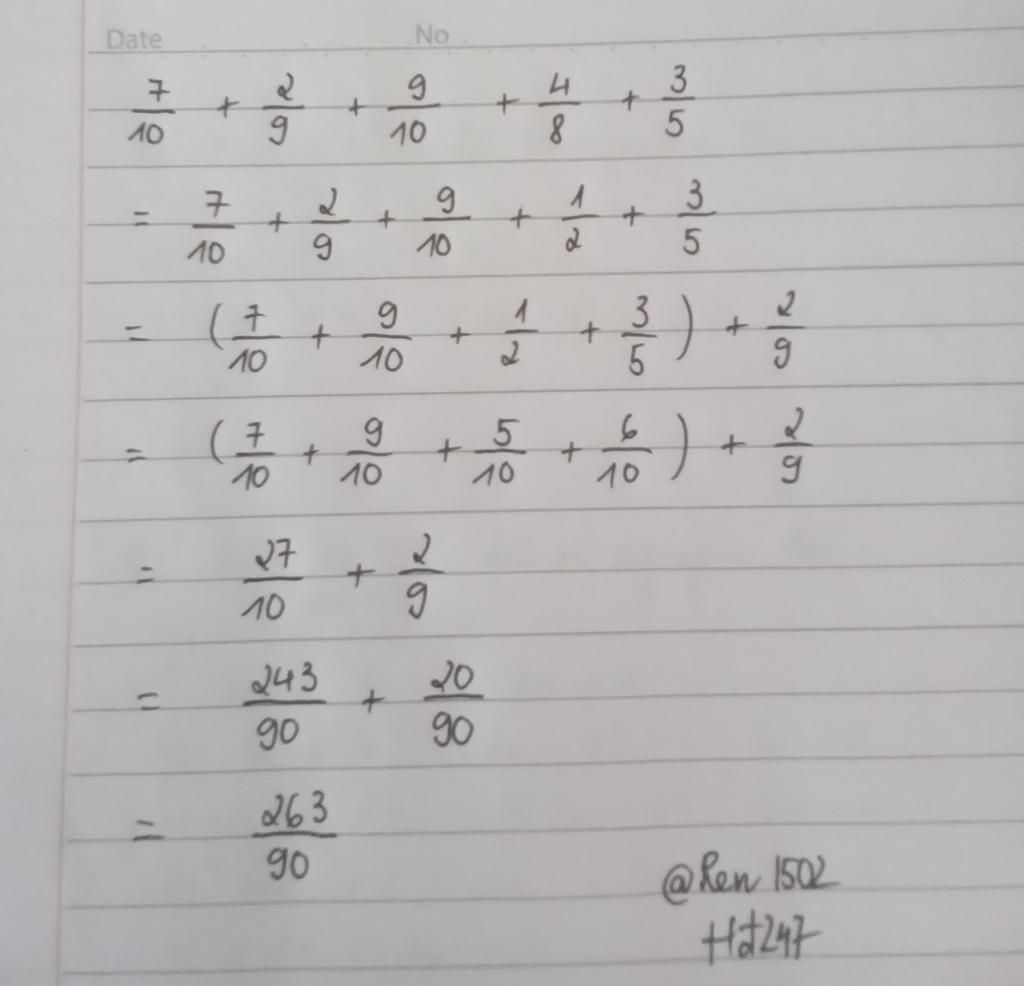 Date No
7/10 + 2/9 + 9/10 + 4/8 + 3/5
= 7/10 + 2/9 + 9/10 + 1/2 + 3/5
= (7/10 + 9/10 + 1/2 + 3/5) + 2/9
= (7/10 + 9/10 + 5/10 + 6/10) + 2/9
= 27/10 + 2/9
= 243/90 + 20/90
= 263/90
@Ren 1502